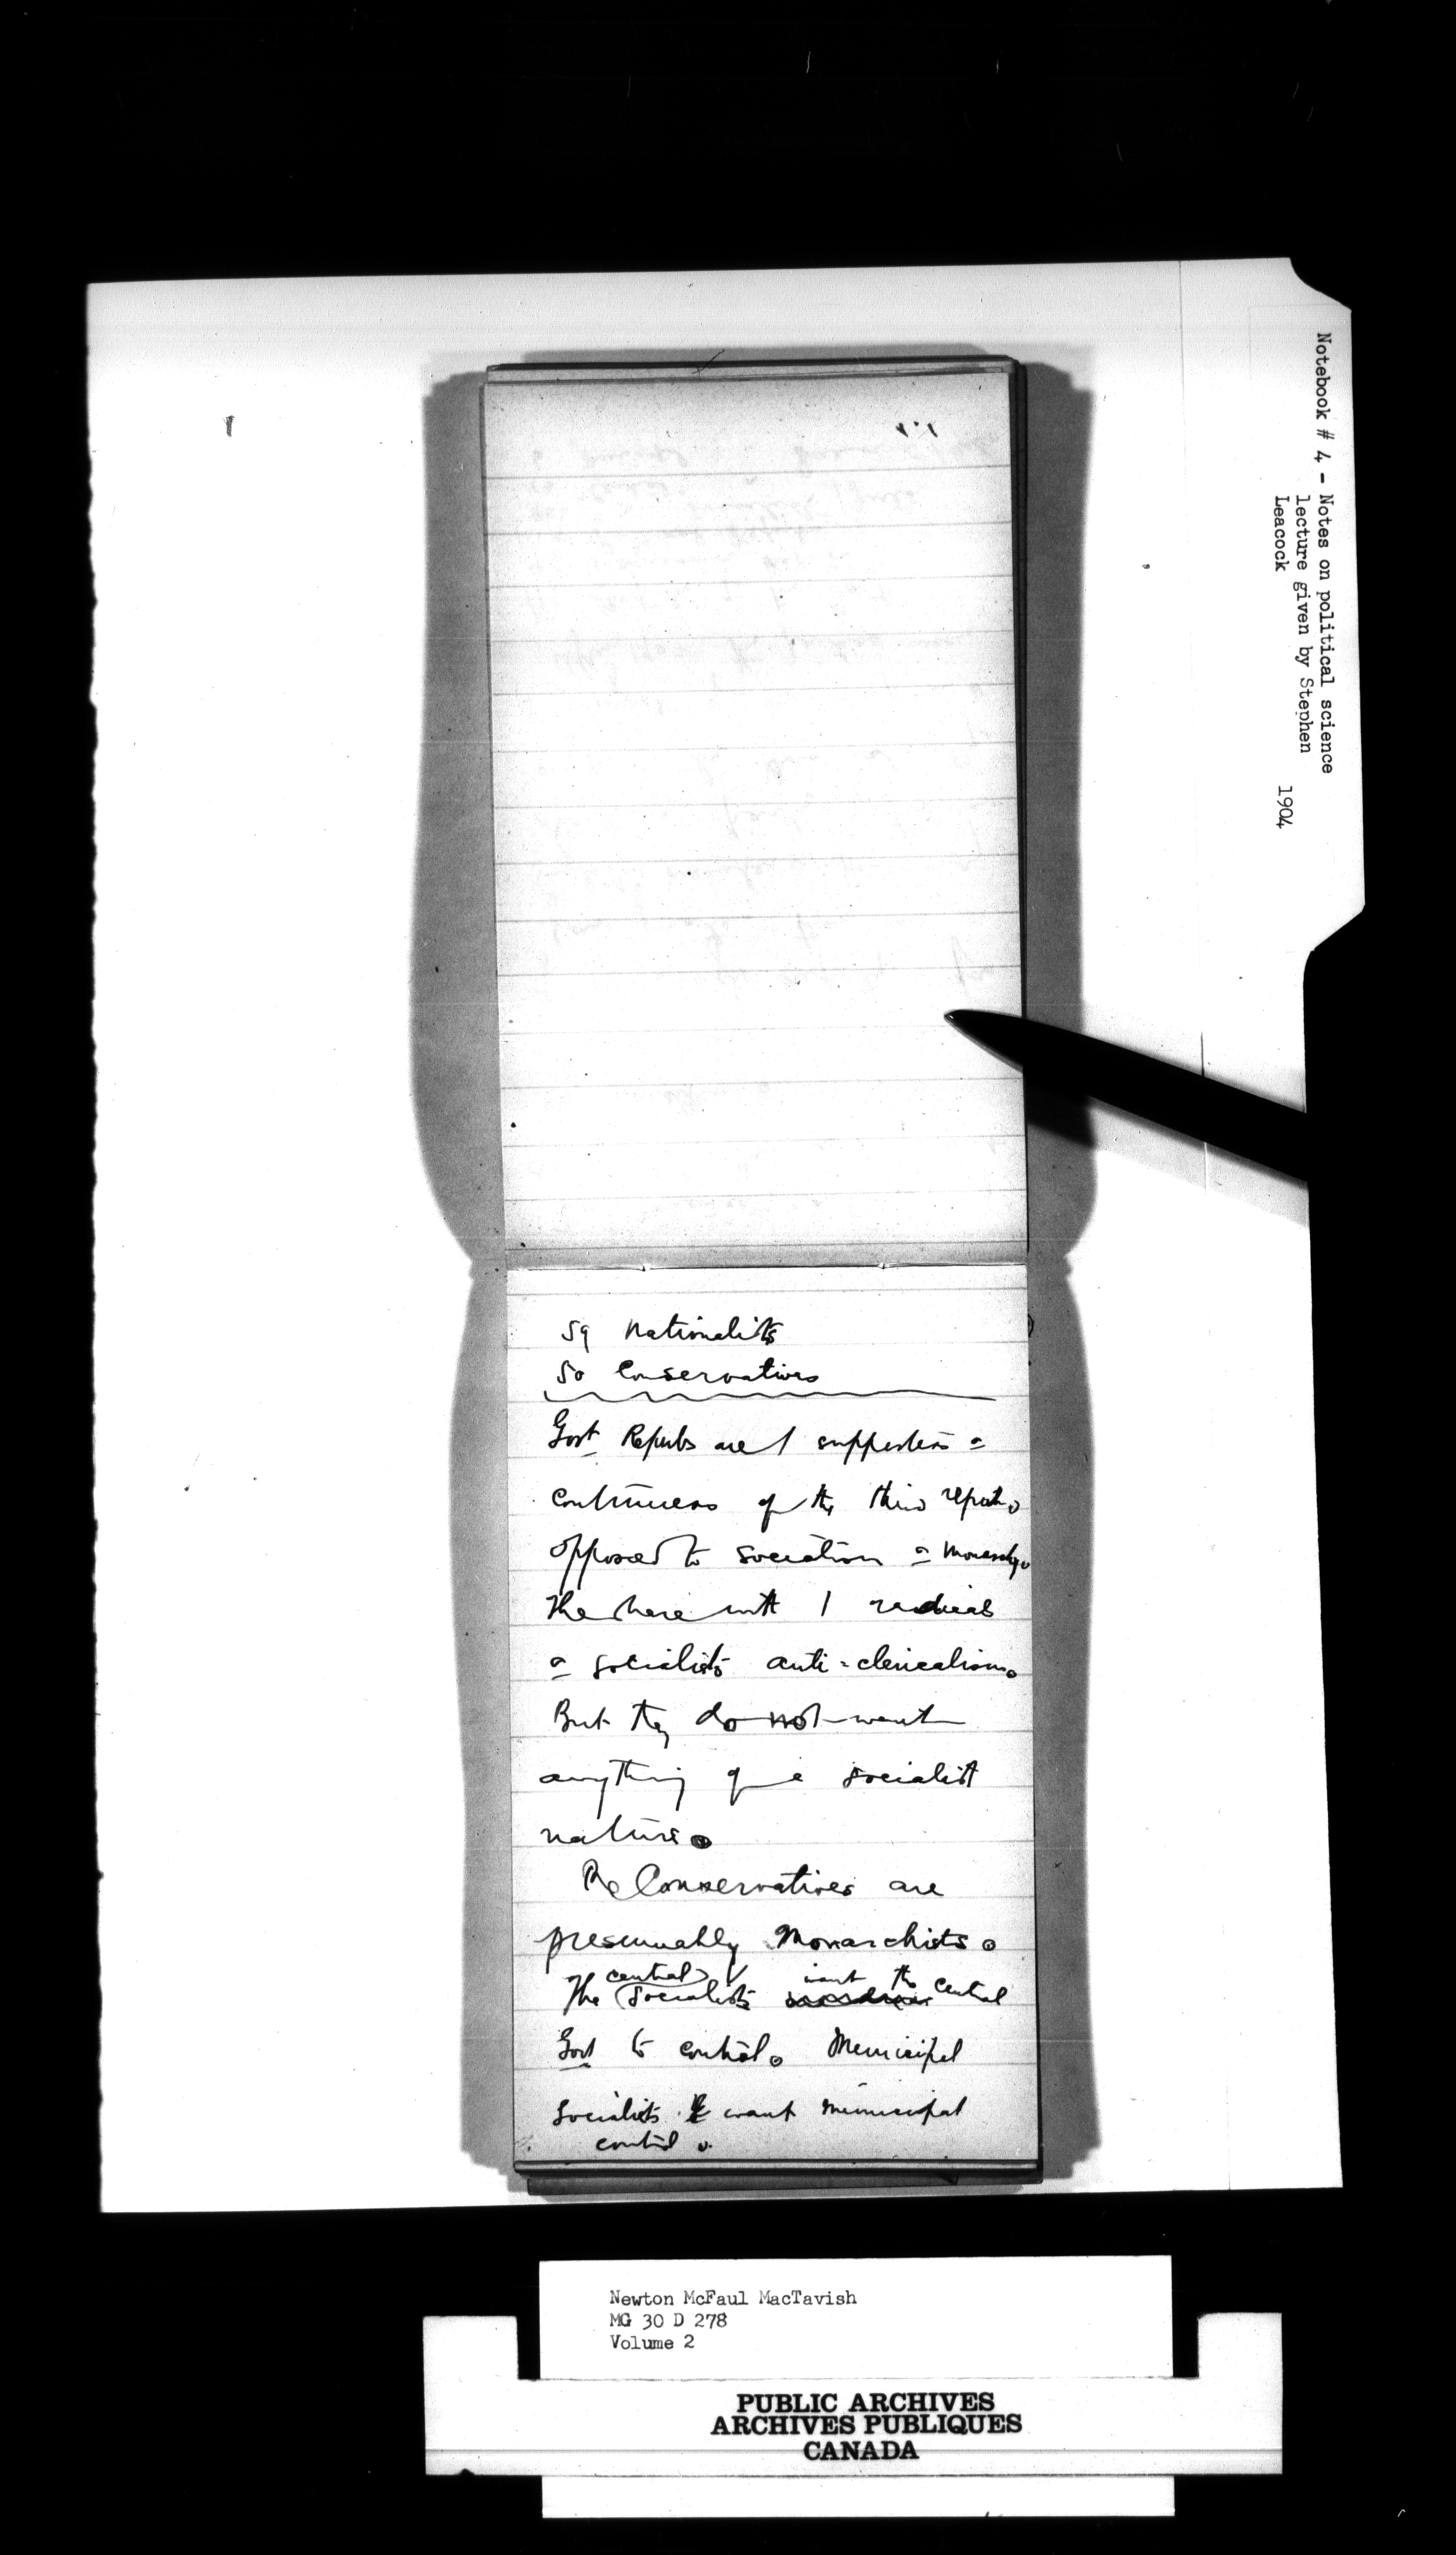 Notebook # 4 - Notes on political science
lecture given by Stephen
Leacock 1904
59 Nationalists
50 Conservatives
Govt Repubs are supporters
continuers of the third repub.
opposed to socialism monarchy.
The share with radicals
socialists anti-clericalism.
But they do not want
anything of a socialist
nature.
The Conservatives are
presumably Monarchists.
central want the
The (Socialists central
Govt to control. Municipal
Socialists want municipal
control.
Newton McFaul MacTavish
MG 30 D 278
Volume 2
PUBLIC ARCHIVES
ARCHIVES PUBLIQUES
CANADA